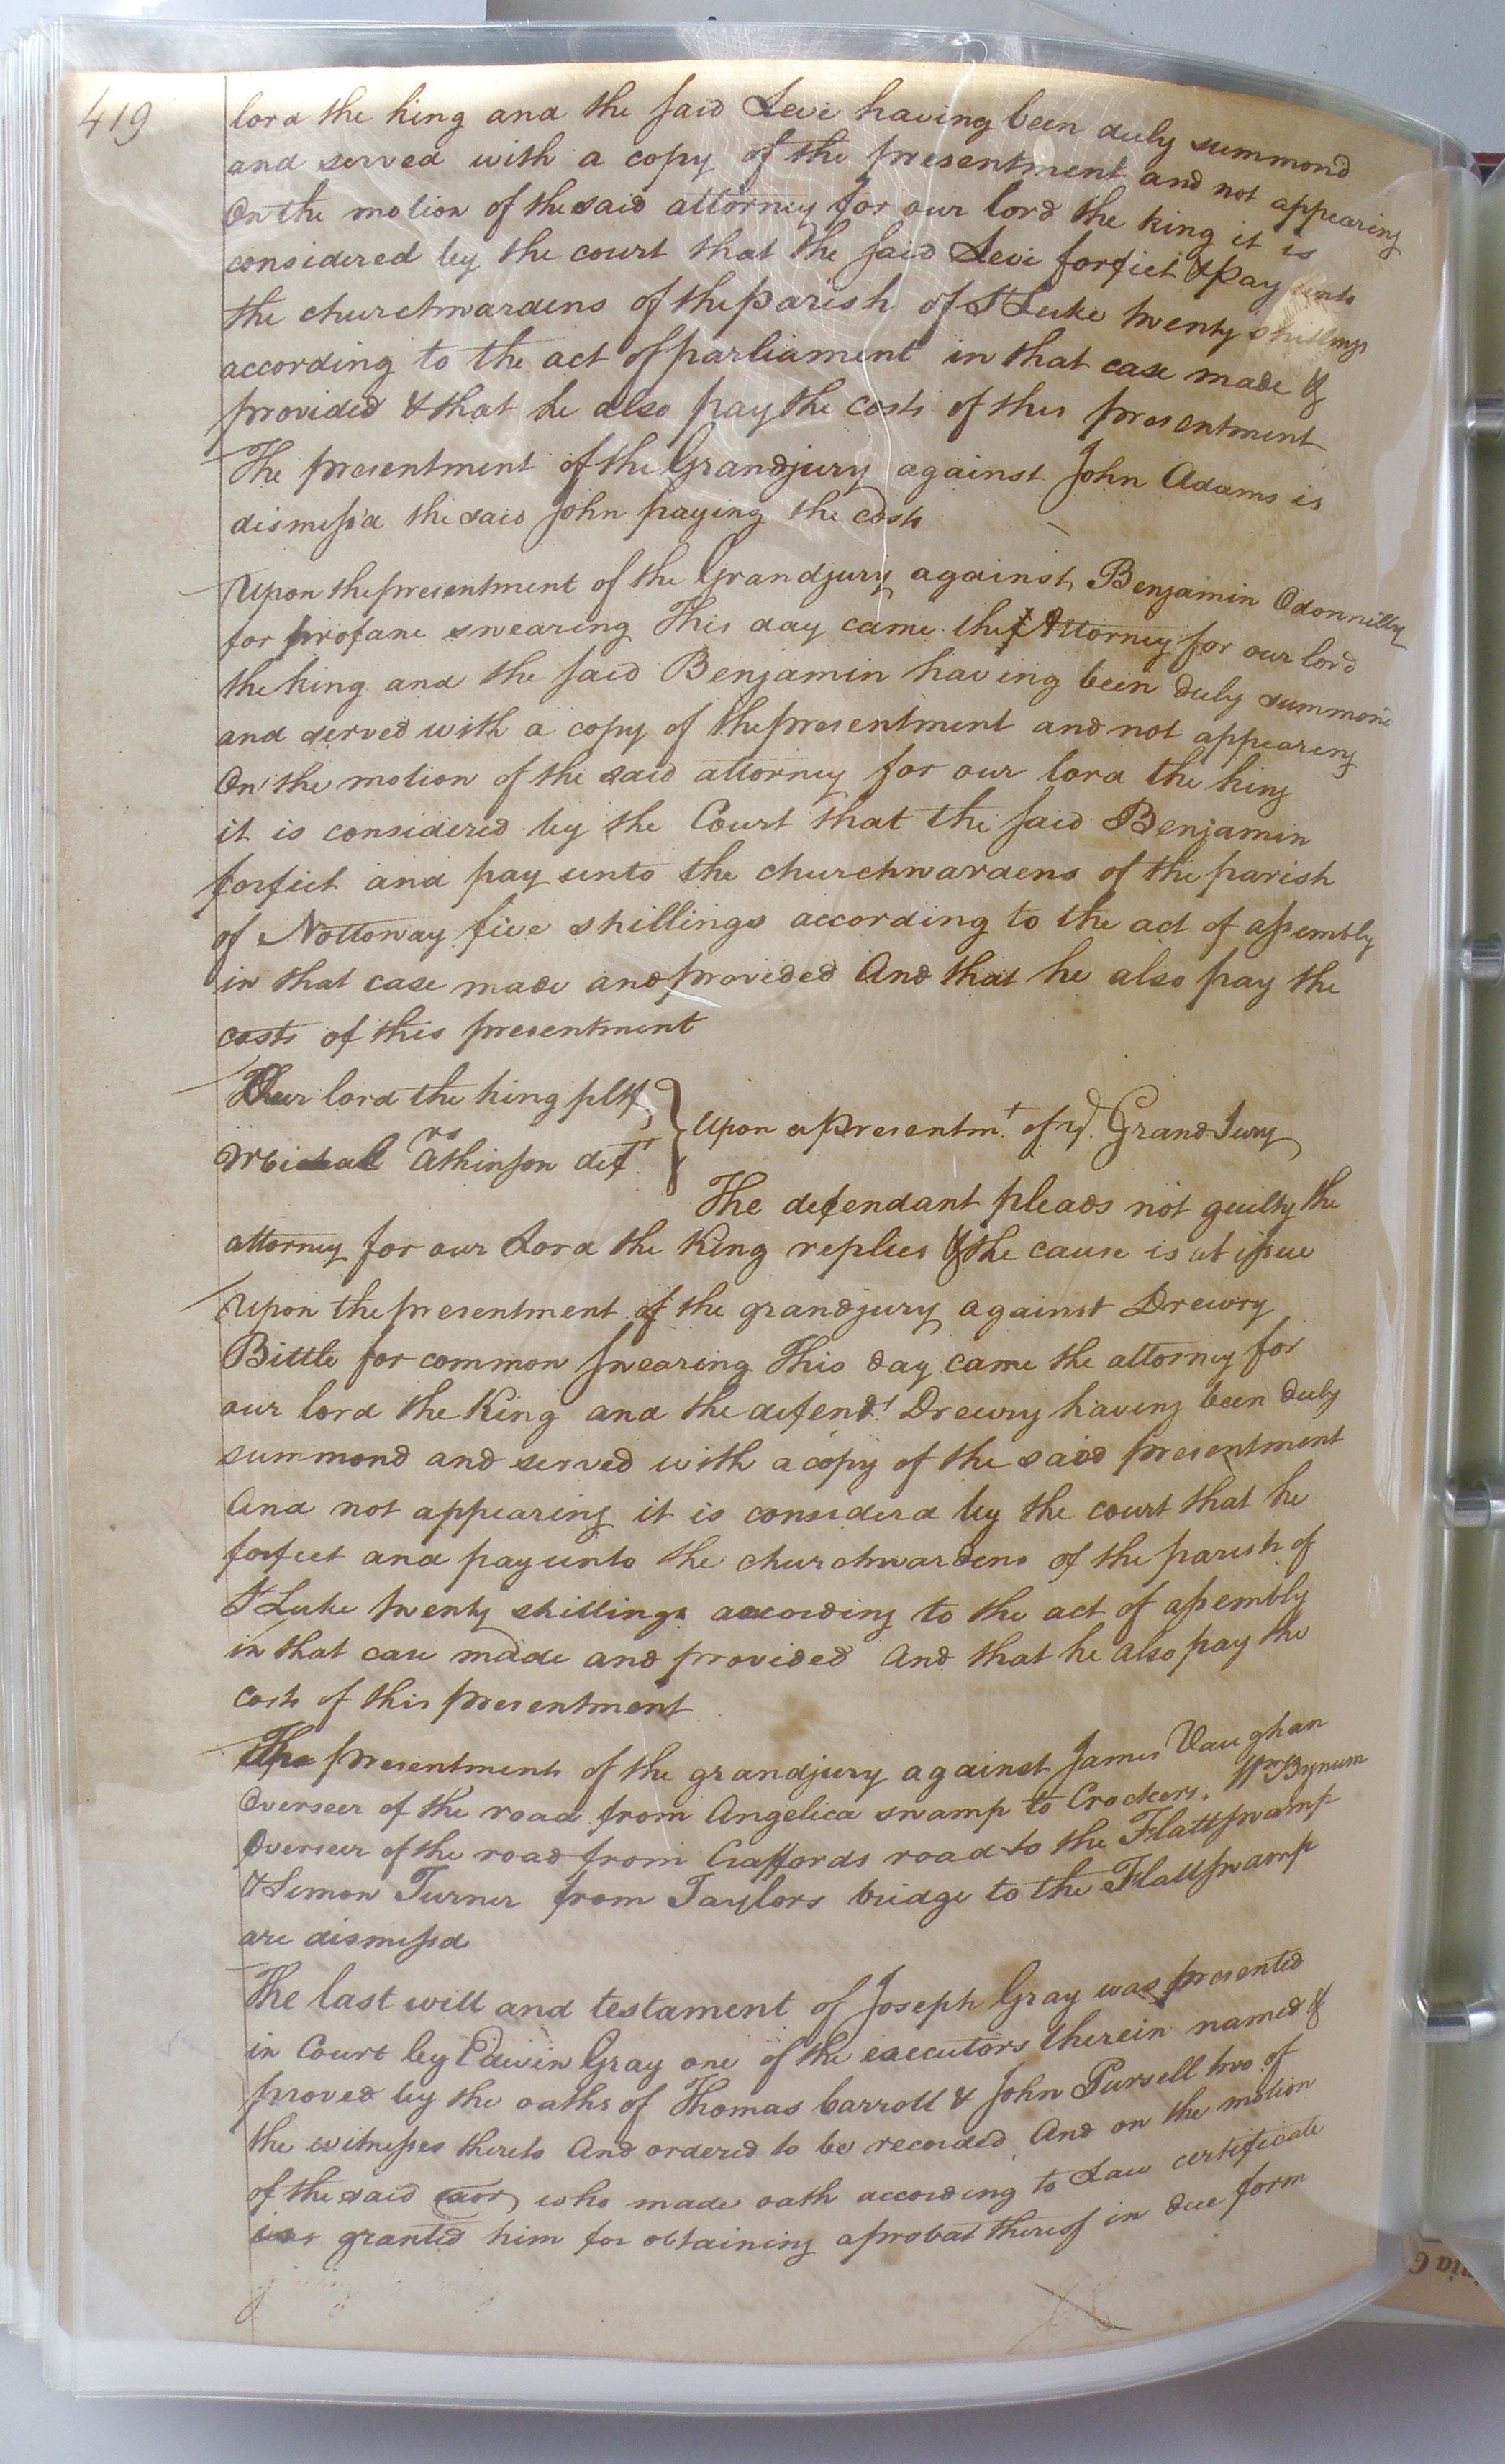 419
lord the king and the said Levi having been duly summond
and served with a copy of the presentment and not appearing
On the motion of the said attorney for our lord the king it is
considered by the court that the said Levi forfiet & pay unto
the churchwardens of the parish of St Luke twenty shillings
according to the act of parliament in that case made &
provided & that he also pay the costs of this presentment
The presentment of the Grandjury against John Adams is
dismiss'd the said John paying the costs
Upon the presentment of the Grandjury against Benjamin Odonnilly
for profane swearing This day came the Attorney for our lord
the king and the said Benjamin having been duly summon'd
and served with a copy of the presentment and not appearing
On the motion of the said attorney for our lord the king
it is considered by the Court that the said Benjamin
forfiet and pay unto the churchwardens of the parish
of Nottoway five shillings according to the act of assembly
in that case made and provided And that he also pay the
costs of this presentment
Our lord the king pltf
vs
Michael Atkinson deft
Upon a Presentmt. of ye. Grand Jury
The defendant pleads not guilty the
attorney for our Lord the King replies & the cause is at issue
Upon the presentment of the grandjury against Drewry
Bittle for common swearing This day came the attorney for
our lord the King and the defendt Drewry having been duly
summond and served with a copy of the said presentment
And not appearing it is considerd by the court that he
forfeet and pay unto the churchwardens of the parish of
St Luke twenty shillings according to the act of assembly
in that case made and provided And that he also pay the
costs of this presentment
The presentments of the grandjury against James Vaughan
Overseer of the road from Angelica swamp to Crockers, Wm Bynum
Overseer of the road from Craffords road to the Flatt swamp
& Simon Turner from Taylors bridge to the Flatt swamp
are dismissd
The last will and testament of Joseph Gray was presented
in Court by Edwin Gray one of the executors therein named &
proved by the oaths of Thomas Carroll & John Pursell two of
the witnesses thereto And ordered to be recorded And on the motion
of the said exor who made oath according to Law certificate
is granted him for obtaining a probat thereof in due form